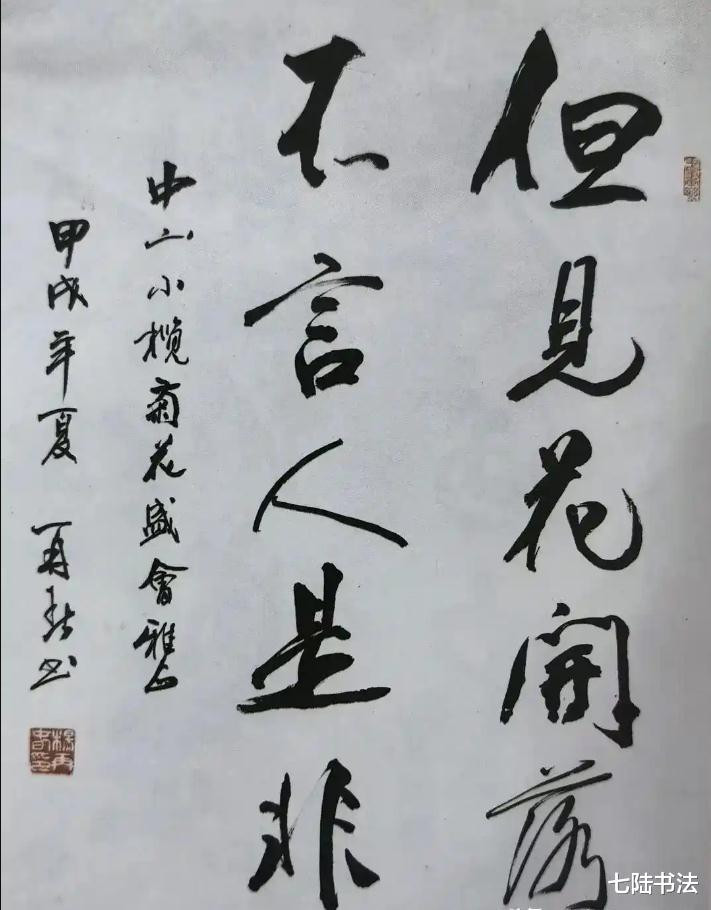 但見花開落
不言人是非
中山小欖菊花盛會雅正
甲戌年夏 再春书
七陆书法